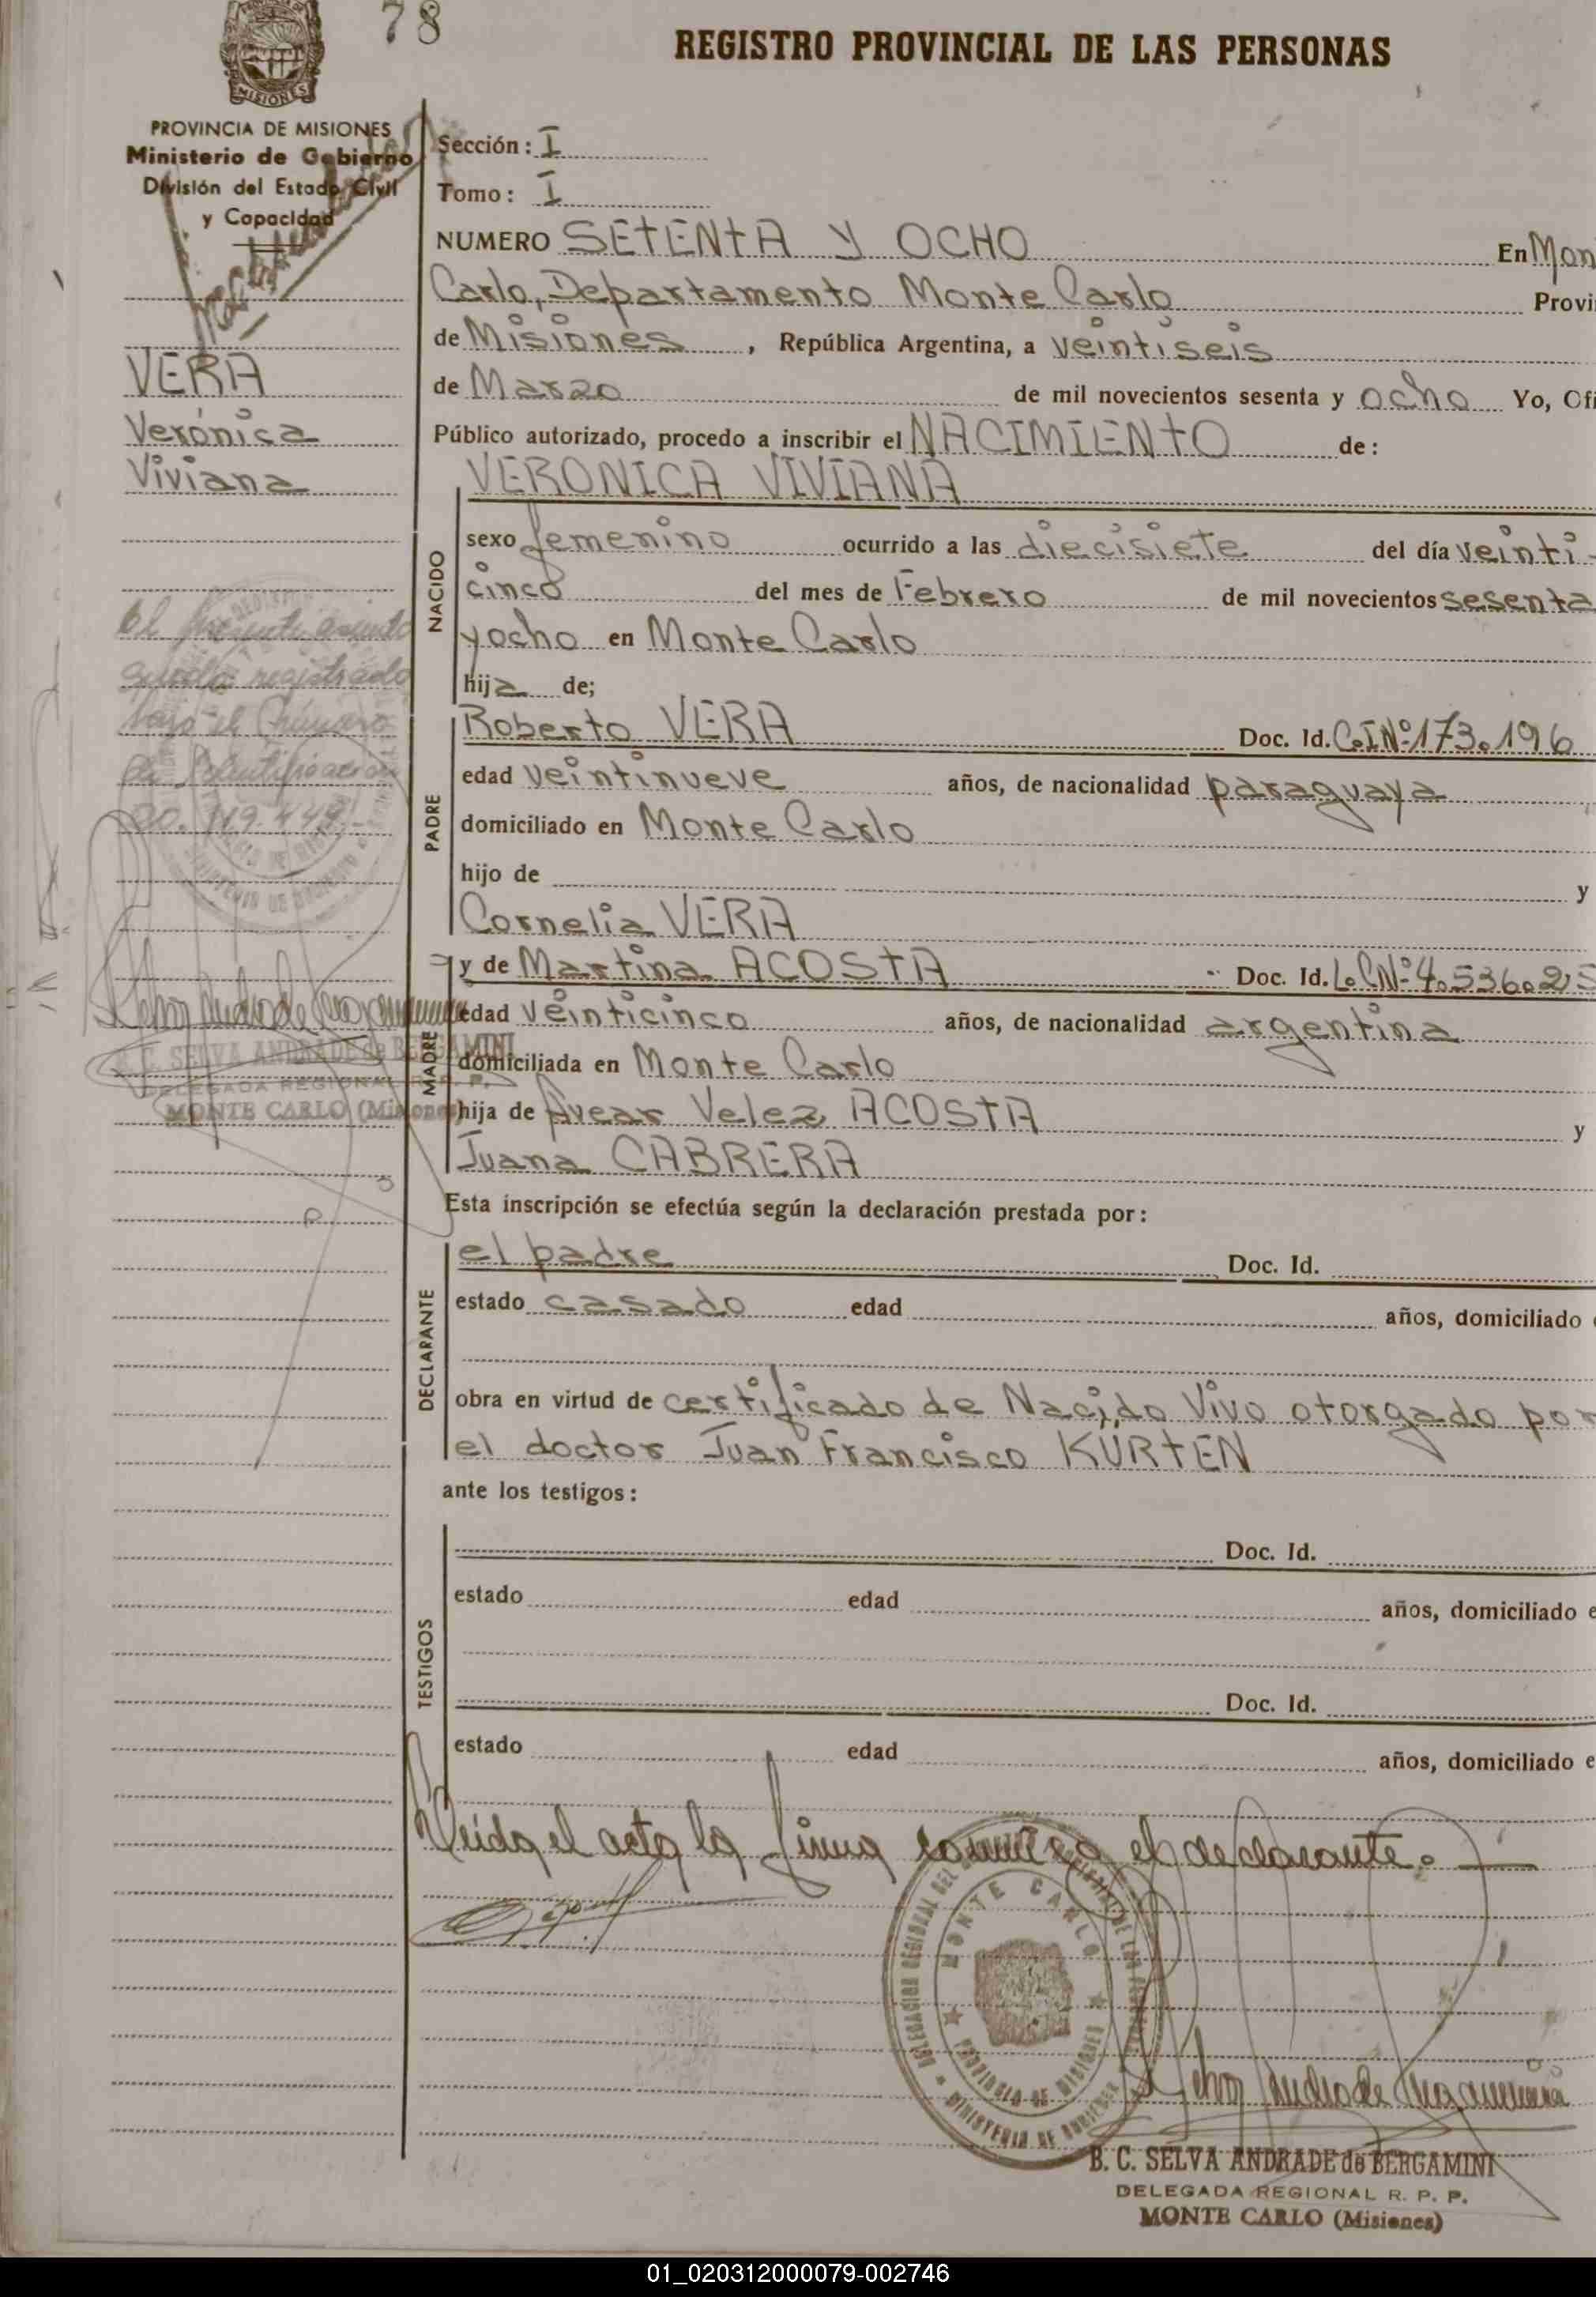 78
REGISTRO PROVINCIAL DE LAS PERSONAS
MISIONES
PROVINCIA DE MISIONES
Ministerio de Gobierno
División del Estado Civil
y Capacidad
Sección: I
Tomo: I
NUMERO SETENTA Y OCHO En Mon
Carlo, Departamento Monte Carlo Provi
de Misiones, República Argentina, a veintiseis
de Marzo de mil novecientos sesenta y ocho Yo, Ofi
Público autorizado, procedo a inscribir el NACIMIENTO de:
VERONICA VIVIANA
VERA
Verónica
Viviana
NACIDO
sexo femenino ocurrido a las diecisiete del día veinti-
cinco del mes de Febrero de mil novecientos sesenta
y ocho en Monte Carlo
hija de;
El presente asiento
queda registrado
bajo el Número
de Identificación
20.719.449.-
PADRE
Roberto VERA Doc. Id. C.I.Nº 173.196
edad veintinueve años, de nacionalidad paraguaya
domiciliado en Monte Carlo
hijo de y
Cornelia VERA
MADRE
y de Martina ACOSTA Doc. Id. L.C.Nº 4.536.2
edad veinticinco años, de nacionalidad argentina
domiciliada en Monte Carlo
hija de Velez ACOSTA y
Juana CABRERA
B. C. SELVA ANDRADE de BERGAMINI
DELEGADA REGIONAL R. P. P.
MONTE CARLO (Misiones)
Esta inscripción se efectúa según la declaración prestada por:
DECLARANTE
el padre Doc. Id.
estado casado edad años, domiciliado
obra en virtud de certificado de Nacido Vivo otorgado por
el doctor Juan Francisco KURTEN
ante los testigos:
TESTIGOS
Doc. Id.
estado edad años, domiciliado e
Doc. Id.
estado edad años, domiciliado e
Leida el acta la firma conmigo el declarante.
MONTE CARLO
PROVINCIA DE MISIONES
MINISTERIO DE GOBIERNO
B. C. SELVA ANDRADE de BERGAMINI
DELEGADA REGIONAL R. P. P.
MONTE CARLO (Misiones)
01_020312000079-002746